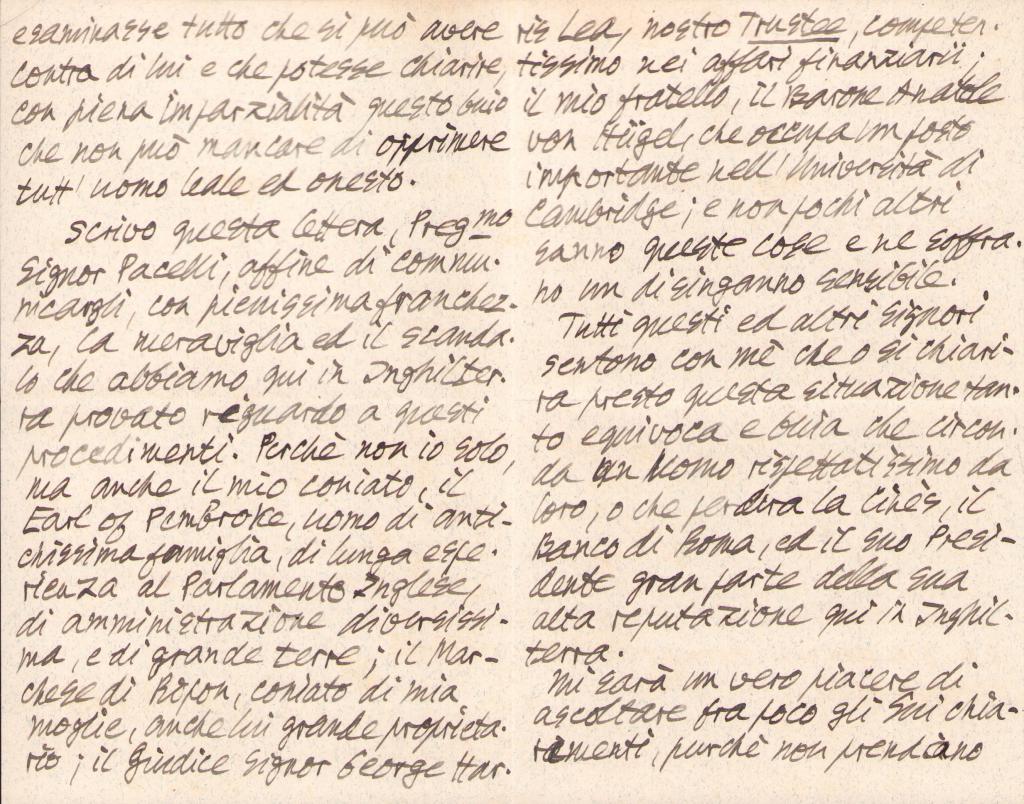 esaminasse tutto che si può avere
contra di lui e che potesse chiarire,
con piena imparzialità questo buio
che non può mancare di opprimere
tutt' uomo leale ed onesto.
Scrivo questa lettera, Preg.mo
Signor Pacelli, affine di commu-
nicargli, con pienissima franchez-
za, la meraviglia ed il scanda-
lo che abbiamo qui in Inghilter-
ra provato riguardo a questi
procedimenti. Perchè non io solo,
ma anche il mio coniato, il
Earl of Pembroke, uomo di anti-
chissima famiglia, di lunga espe-
rienza al Parlamento Inglese,
di amministrazione diversissi-
ma, e di grande terre; il Mar-
chese di Ripon, coniato di mia
moglie, anche lui grande proprieta-
rio; il Giudice Signor George Har-
ris Lea, nostro Trustee, competen-
tissimo nei affari finanziarii;
il mio fratello, il Barone Anatole
von Hügel, che occupa un posto
importante nell' Università di
Cambridge; e non pochi altri
sanno queste cose e ne soffra-
no un disinganno sensibile.
Tutti questi ed altri Signori
sentono con mè che o si chiari-
ra presto questa situazione tan-
to equivoca e buia che circon-
da un uomo rispettatissimo da
loro, o che perdira la Cinès, il
Banco di Roma, ed il suo Presi-
dente gran parte della sua
alta reputazione qui in Inghil-
terra.
Mi sarà un vero piacere di
ascoltare fra poco gli Sui chia-
rimenti, purchè non prendiano